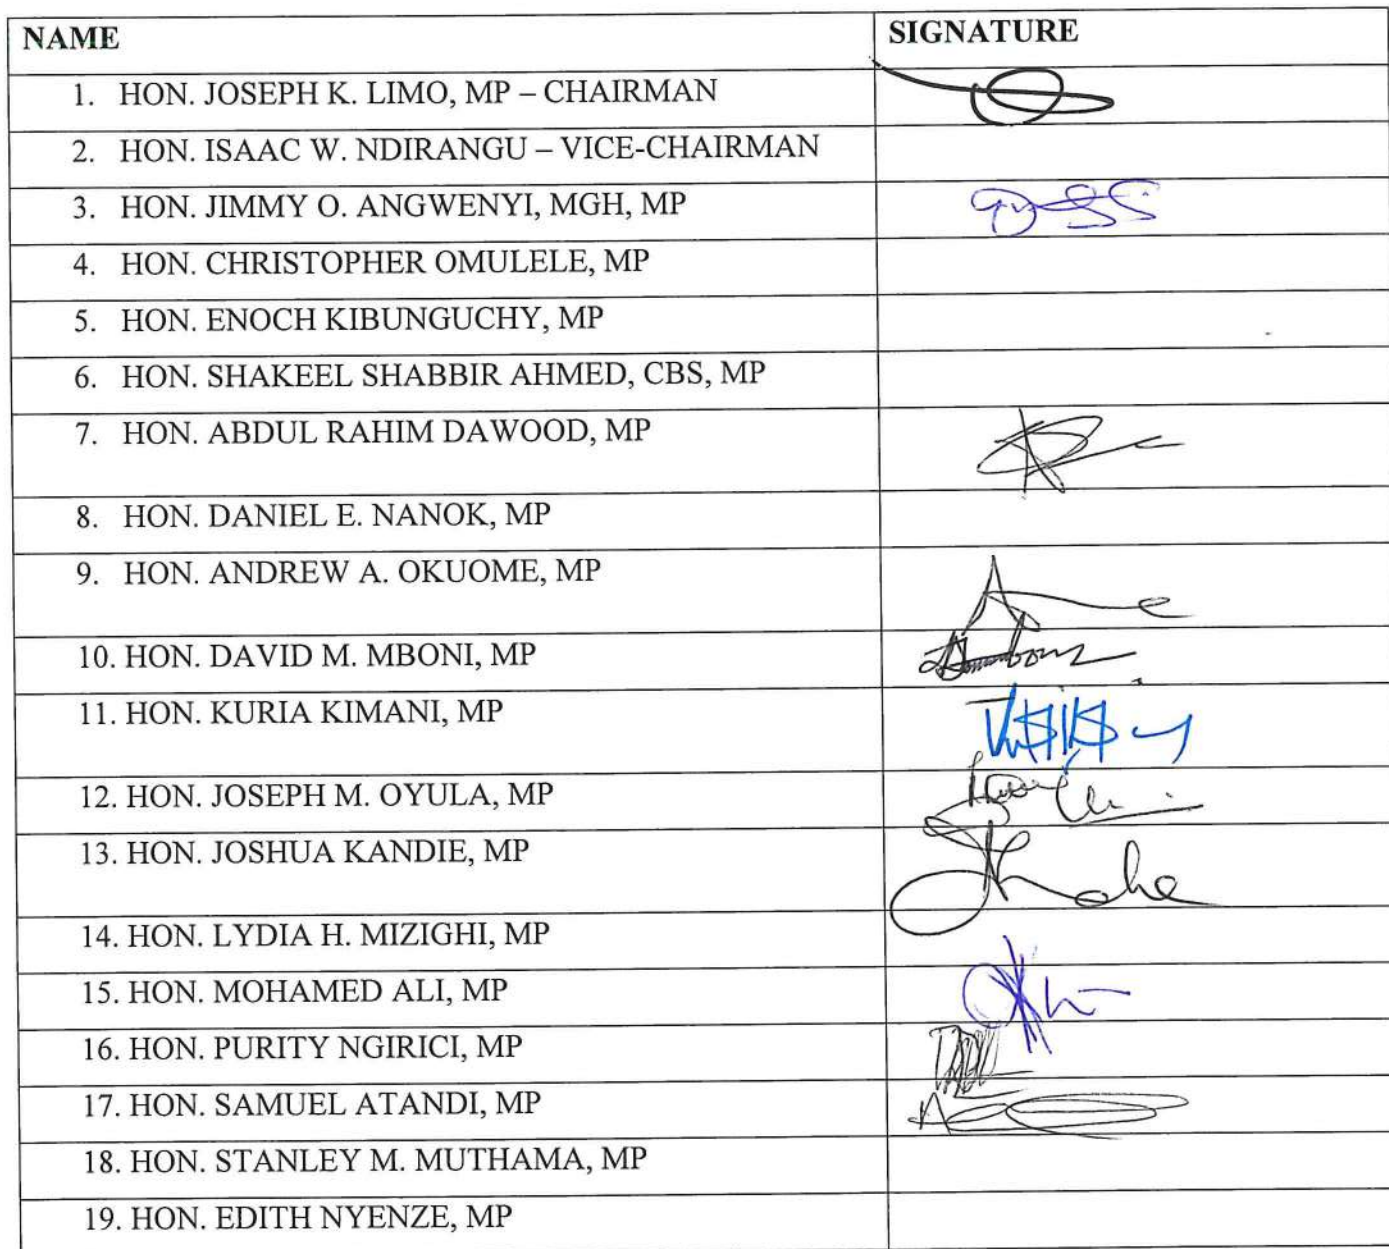 NAME SIGNATURE
1. HON. JOSEPH K. LIMO, MP – CHAIRMAN
2. HON. ISAAC W. NDIRANGU – VICE-CHAIRMAN
3. HON. JIMMY O. ANGWENYI, MGH, MP
4. HON. CHRISTOPHER OMULELE, MP
5. HON. ENOCH KIBUNGUCHY, MP
6. HON. SHAKEEL SHABBIR AHMED, CBS, MP
7. HON. ABDUL RAHIM DAWOOD, MP
8. HON. DANIEL E. NANOK, MP
9. HON. ANDREW A. OKUOME, MP
10. HON. DAVID M. MBONI, MP
11. HON. KURIA KIMANI, MP
12. HON. JOSEPH M. OYULA, MP
13. HON. JOSHUA KANDIE, MP
14. HON. LYDIA H. MIZIGHI, MP
15. HON. MOHAMED ALI, MP
16. HON. PURITY NGIRICI, MP
17. HON. SAMUEL ATANDI, MP
18. HON. STANLEY M. MUTHAMA, MP
19. HON. EDITH NYENZE, MP